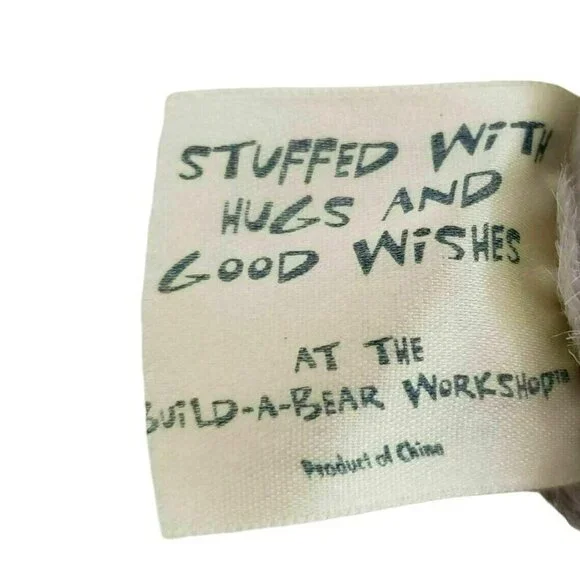 STUFFED WiTH
HUGS AND
GOOD WiSHES
AT THE
BUiLD-A-BEAR WORKSHOP™
Product of China